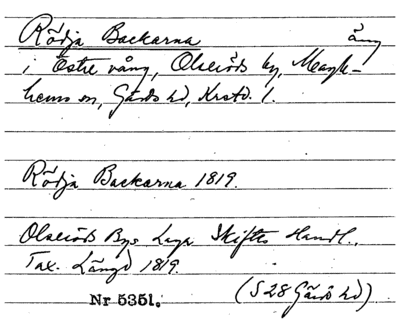 Rödja Backarna äng
i Östre vång, Olseröds by, Magle-
hems sn, Gärds hd, Krstd. l.
Rödja Backarna 1819.
Olseröds Bys Laga Skiftes Handl.
Tax. Längd 1819.
Nr 5351. (S 28 Gärds hd)